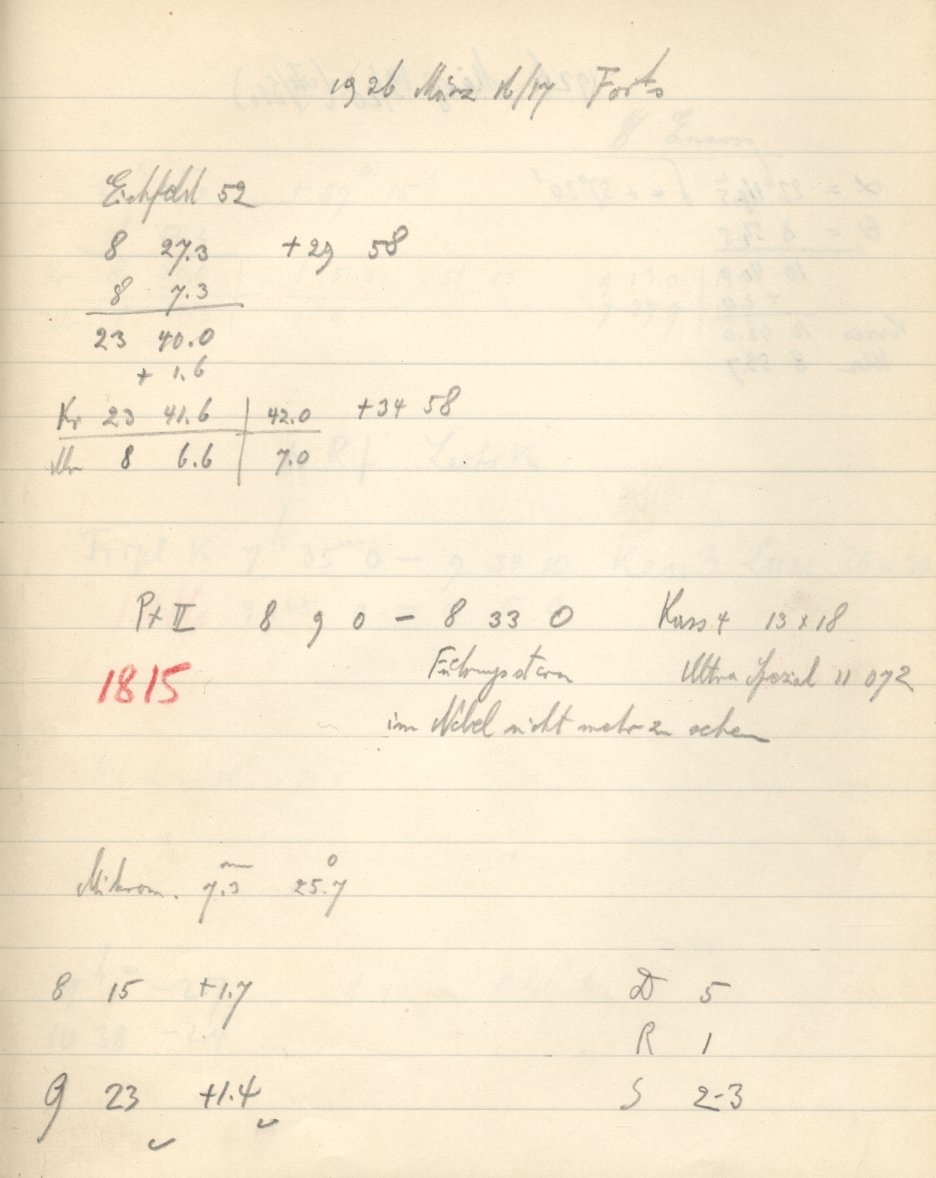 1926 März 16/17 Forts
Eichfeld 52
8 27.3 +29 58
8 7.3
23 40.0
+ 1.6
Kr 23 41.6 | 42.0 +34 58
Uhr 8 6.6 | 7.0
Pt II 8 9 0 – 8 33 0 Kass 4 13 x 18
1815 Führungsstern Ultra Spezial 11 072
im Nebel nicht mehr zu sehen
Mikrom. 7.3 mm 25.7 °
8 15 +1.7 D 5
R 1
9 23 +1.4 S 2-3